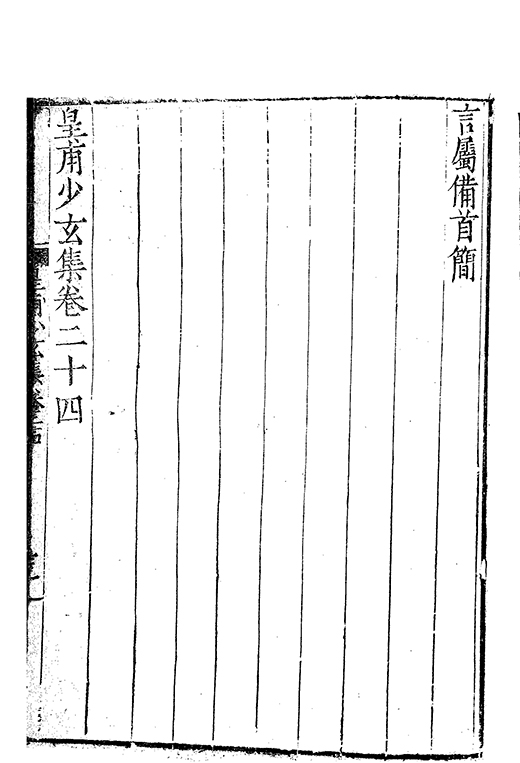 言屬備首簡
皇甫少玄集卷二十四